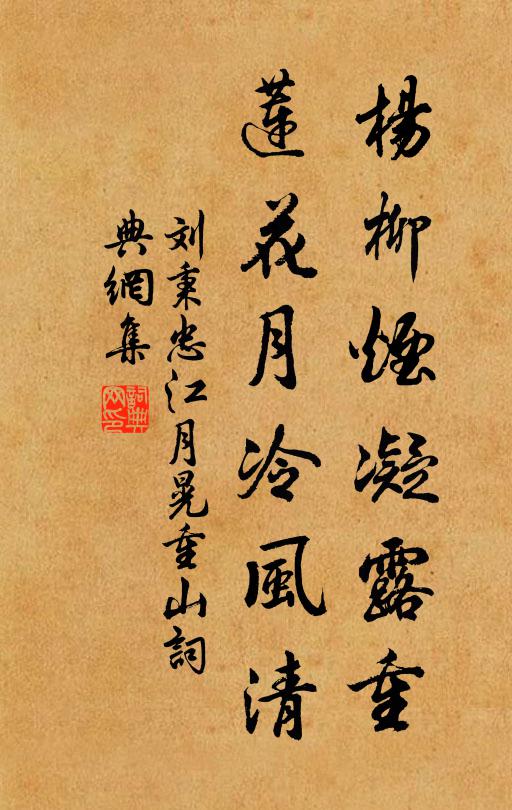 楊柳煙凝露重
蓮花月冷風清
刘秉忠江月晃重山詞
典網集
詞典網印